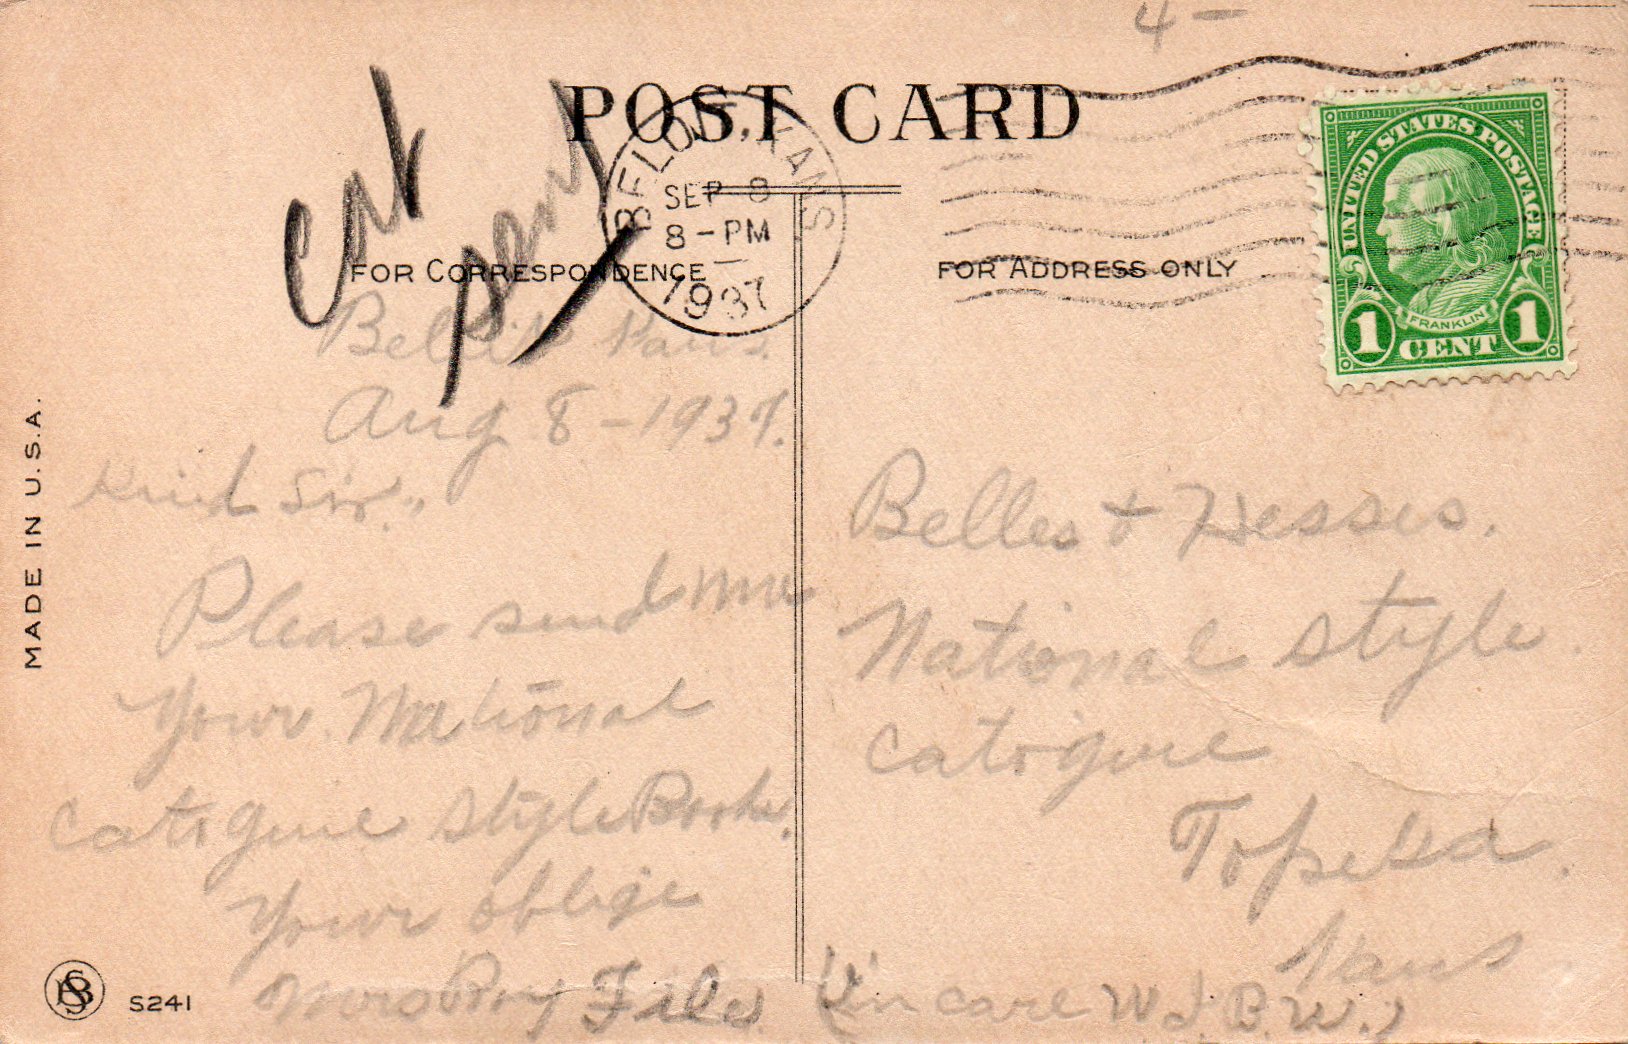 4 –
POST CARD
BELOIT, KANS
SEP 8
8 – PM
1937
UNITED STATES POSTAGE
FRANKLIN
1 CENT 1
Cat
sent
FOR CORRESPONDENCE
FOR ADDRESS ONLY
Beloit Kans.
Aug 8 – 1937.
Kind Sir.,
Please send me
your National
catigure style Books.
your oblige
Mrs Roy Files
Belles + Hesses.
National style.
catigure
Topeka.
Kans
(in care W. I. B. W.)
MADE IN U.S.A.
S241